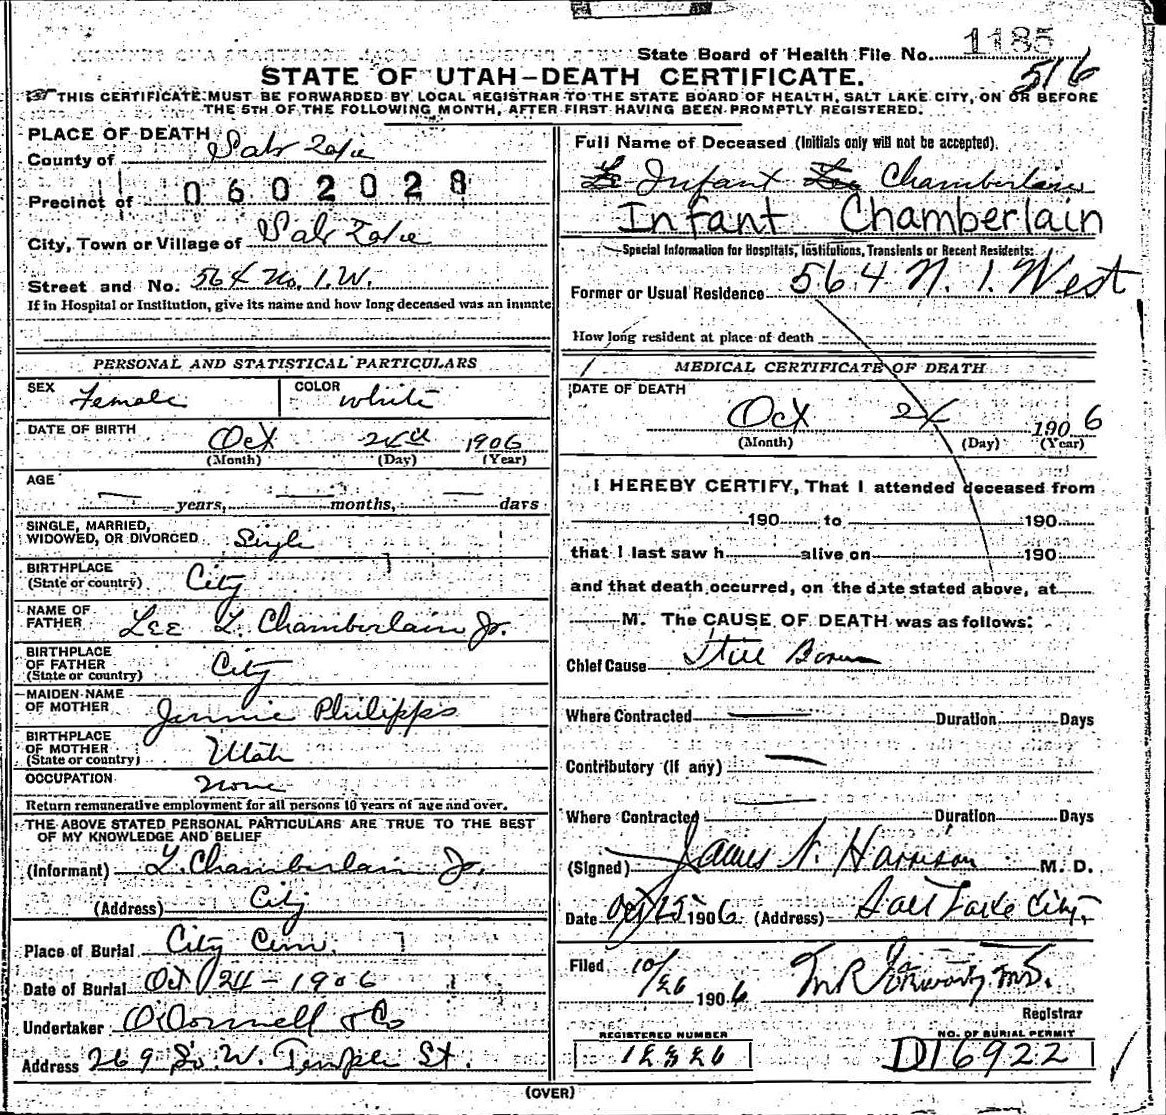 State Board of Health File No. 1185
516
STATE OF UTAH—DEATH CERTIFICATE.
THIS CERTIFICATE MUST BE FORWARDED BY LOCAL REGISTRAR TO THE STATE BOARD OF HEALTH, SALT LAKE CITY, ON OR BEFORE
THE 5TH OF THE FOLLOWING MONTH, AFTER FIRST HAVING BEEN PROMPTLY REGISTERED.
PLACE OF DEATH
County of Salt Lake
Precinct of 0602028
City, Town or Village of Salt Lake
Street and No. 564 No. 1. W.
If in Hospital or Institution, give its name and how long deceased was an inmate
PERSONAL AND STATISTICAL PARTICULARS
SEX Female COLOR White
DATE OF BIRTH Oct 24th 1906
(Month) (Day) (Year)
AGE
— years, — months, — days
SINGLE, MARRIED,
WIDOWED, OR DIVORCED Single
BIRTHPLACE
(State or country) City
NAME OF
FATHER Lee L. Chamberlain Jr.
BIRTHPLACE
OF FATHER
(State or country) City
MAIDEN NAME
OF MOTHER Jennie Philipps
BIRTHPLACE
OF MOTHER
(State or country) Utah
OCCUPATION None
Return remunerative employment for all persons 10 years of age and over.
THE ABOVE STATED PERSONAL PARTICULARS ARE TRUE TO THE BEST
OF MY KNOWLEDGE AND BELIEF
(Informant) L. Chamberlain Jr.
(Address) City
Place of Burial City Cem.
Date of Burial Oct 24 – 1906
Undertaker O'Donnell & Co
Address 269 So. W. Temple St.
Full Name of Deceased (Initials only will not be accepted).
Infant Chamberlain
Infant Chamberlain
Special Information for Hospitals, Institutions, Transients or Recent Residents:
Former or Usual Residence 564 N. 1. West
How long resident at place of death
MEDICAL CERTIFICATE OF DEATH
DATE OF DEATH
Oct 24 1906
(Month) (Day) (Year)
I HEREBY CERTIFY, That I attended deceased from
190 to 190
that I last saw h alive on 190
and that death occurred, on the date stated above, at
M. The CAUSE OF DEATH was as follows:
Chief Cause Still Born
Where Contracted — Duration Days
Contributory (if any) —
Where Contracted — Duration Days
(Signed) James N. Harrison M. D.
Date Oct 25 1906 (Address) Salt Lake City.
Filed 10/26 1906
Registrar
REGISTERED NUMBER NO. OF BURIAL PERMIT
D16922
(OVER)